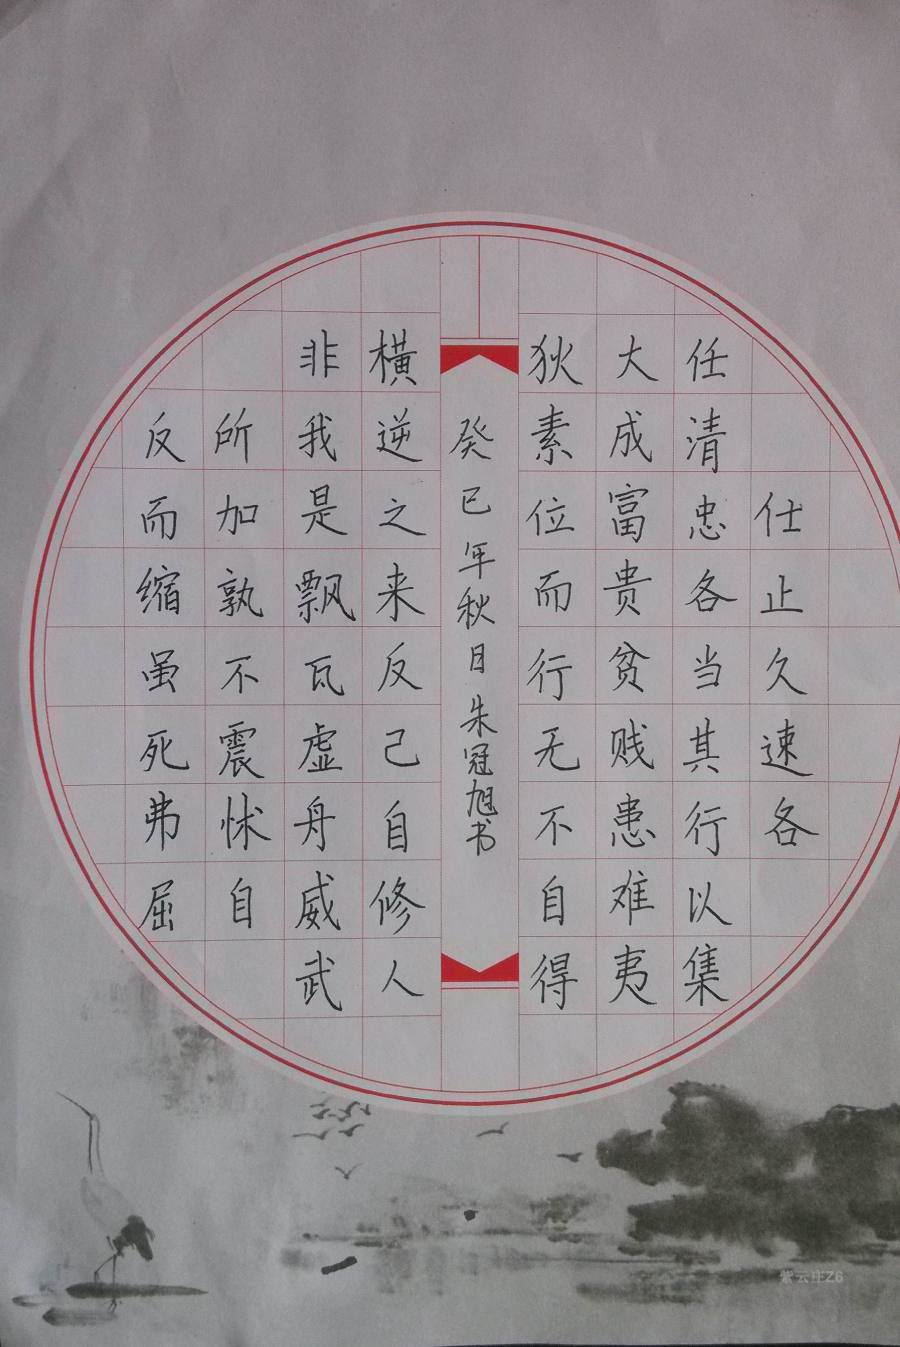 仕止久速各
任清忠各当其行以集
大成富贵贫贱患难夷
狄素位而行无不自得
癸巳年秋日朱冠旭书
横逆之来反己自修人
非我是飘瓦虚舟威武
所加孰不震怵自
反而缩虽死弗屈
紫云庄Z6